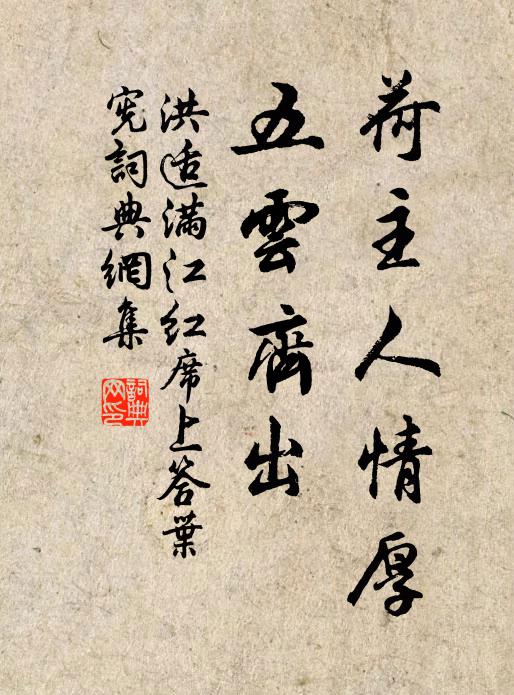 荷主人情厚
五雲齊出
洪适滿江紅席上答葉
宪詞典網集
詞典网印